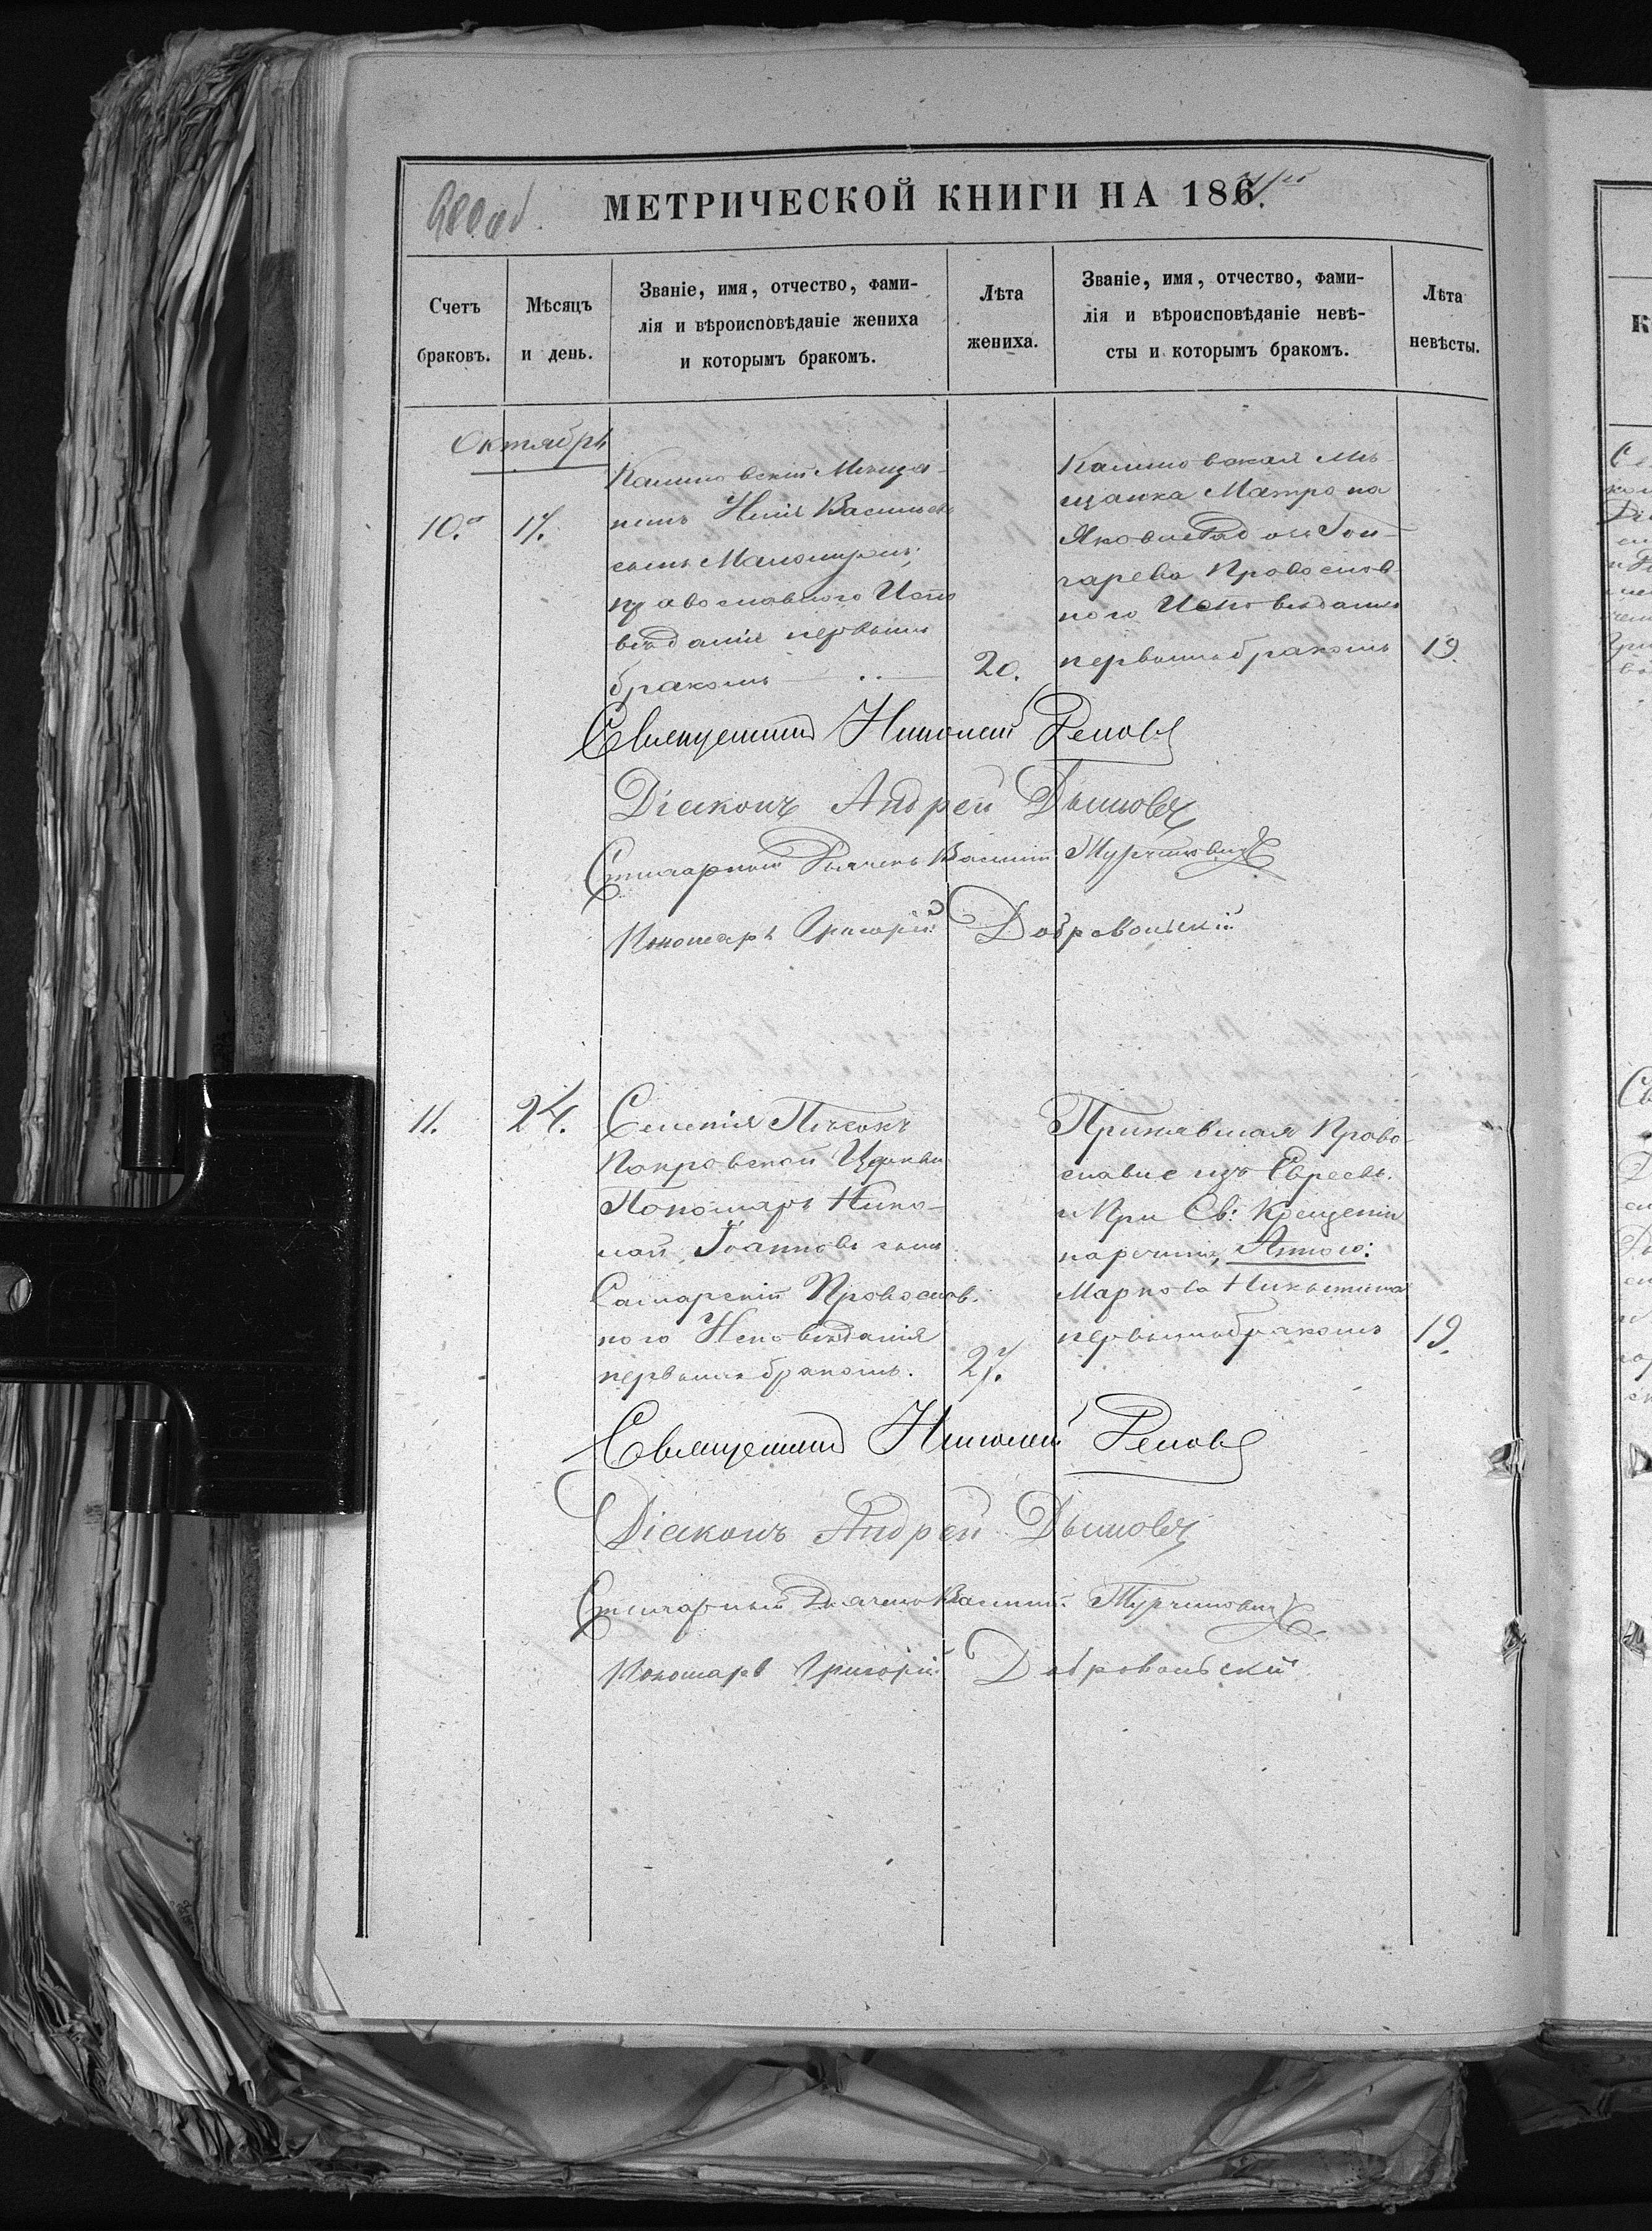 МЕТРИЧЕСКОЙ КНИГИ НА 186
Счетъ браковъ.
Мѣсяцъ и день.
Званіе, имя, отчество, фами-
лія и вѣроисповѣданіе жениха
и которымъ бракомъ.
Лѣта жениха.
Званіе, имя, отчество, фами-
лія и вѣроисповѣданіе невѣ-
сты и которымъ бракомъ.
Лѣта невѣсты.
Октябрь
10. 17.
Мѣща-
нинъ Васильевъ
сынъ
православного Испо
вѣданія первымъ
бракомъ 20.
Мѣ-
щанка Матрона
Яковлева Гон-
чарева Православ
ного Исповѣданія
первымъ бракомъ 19.
Священникъ Николай
Діаконъ Андрей Дымовъ
Стихарный Дьячекъ Василій Турчиновичъ
Пономарь Григорій Добровольскій
11. 24.
Селенія Пѣсокъ
Покровской Церкви
Пономарь Нико-
лай Іоанновъ сынъ
Самарскій Православ
ного Исповѣданія
первымъ бракомъ. 27.
Принявшая Право
славіе изъ Евреевъ.
и При Св: Крещеніи
наречина,
Маркова
первымъ бракомъ 19.
Священникъ Николай
Діаконъ Андрей Дымовъ
Стихарный Дьячекъ Василій Турчиновичъ
Пономарь Григорій Добровольскій